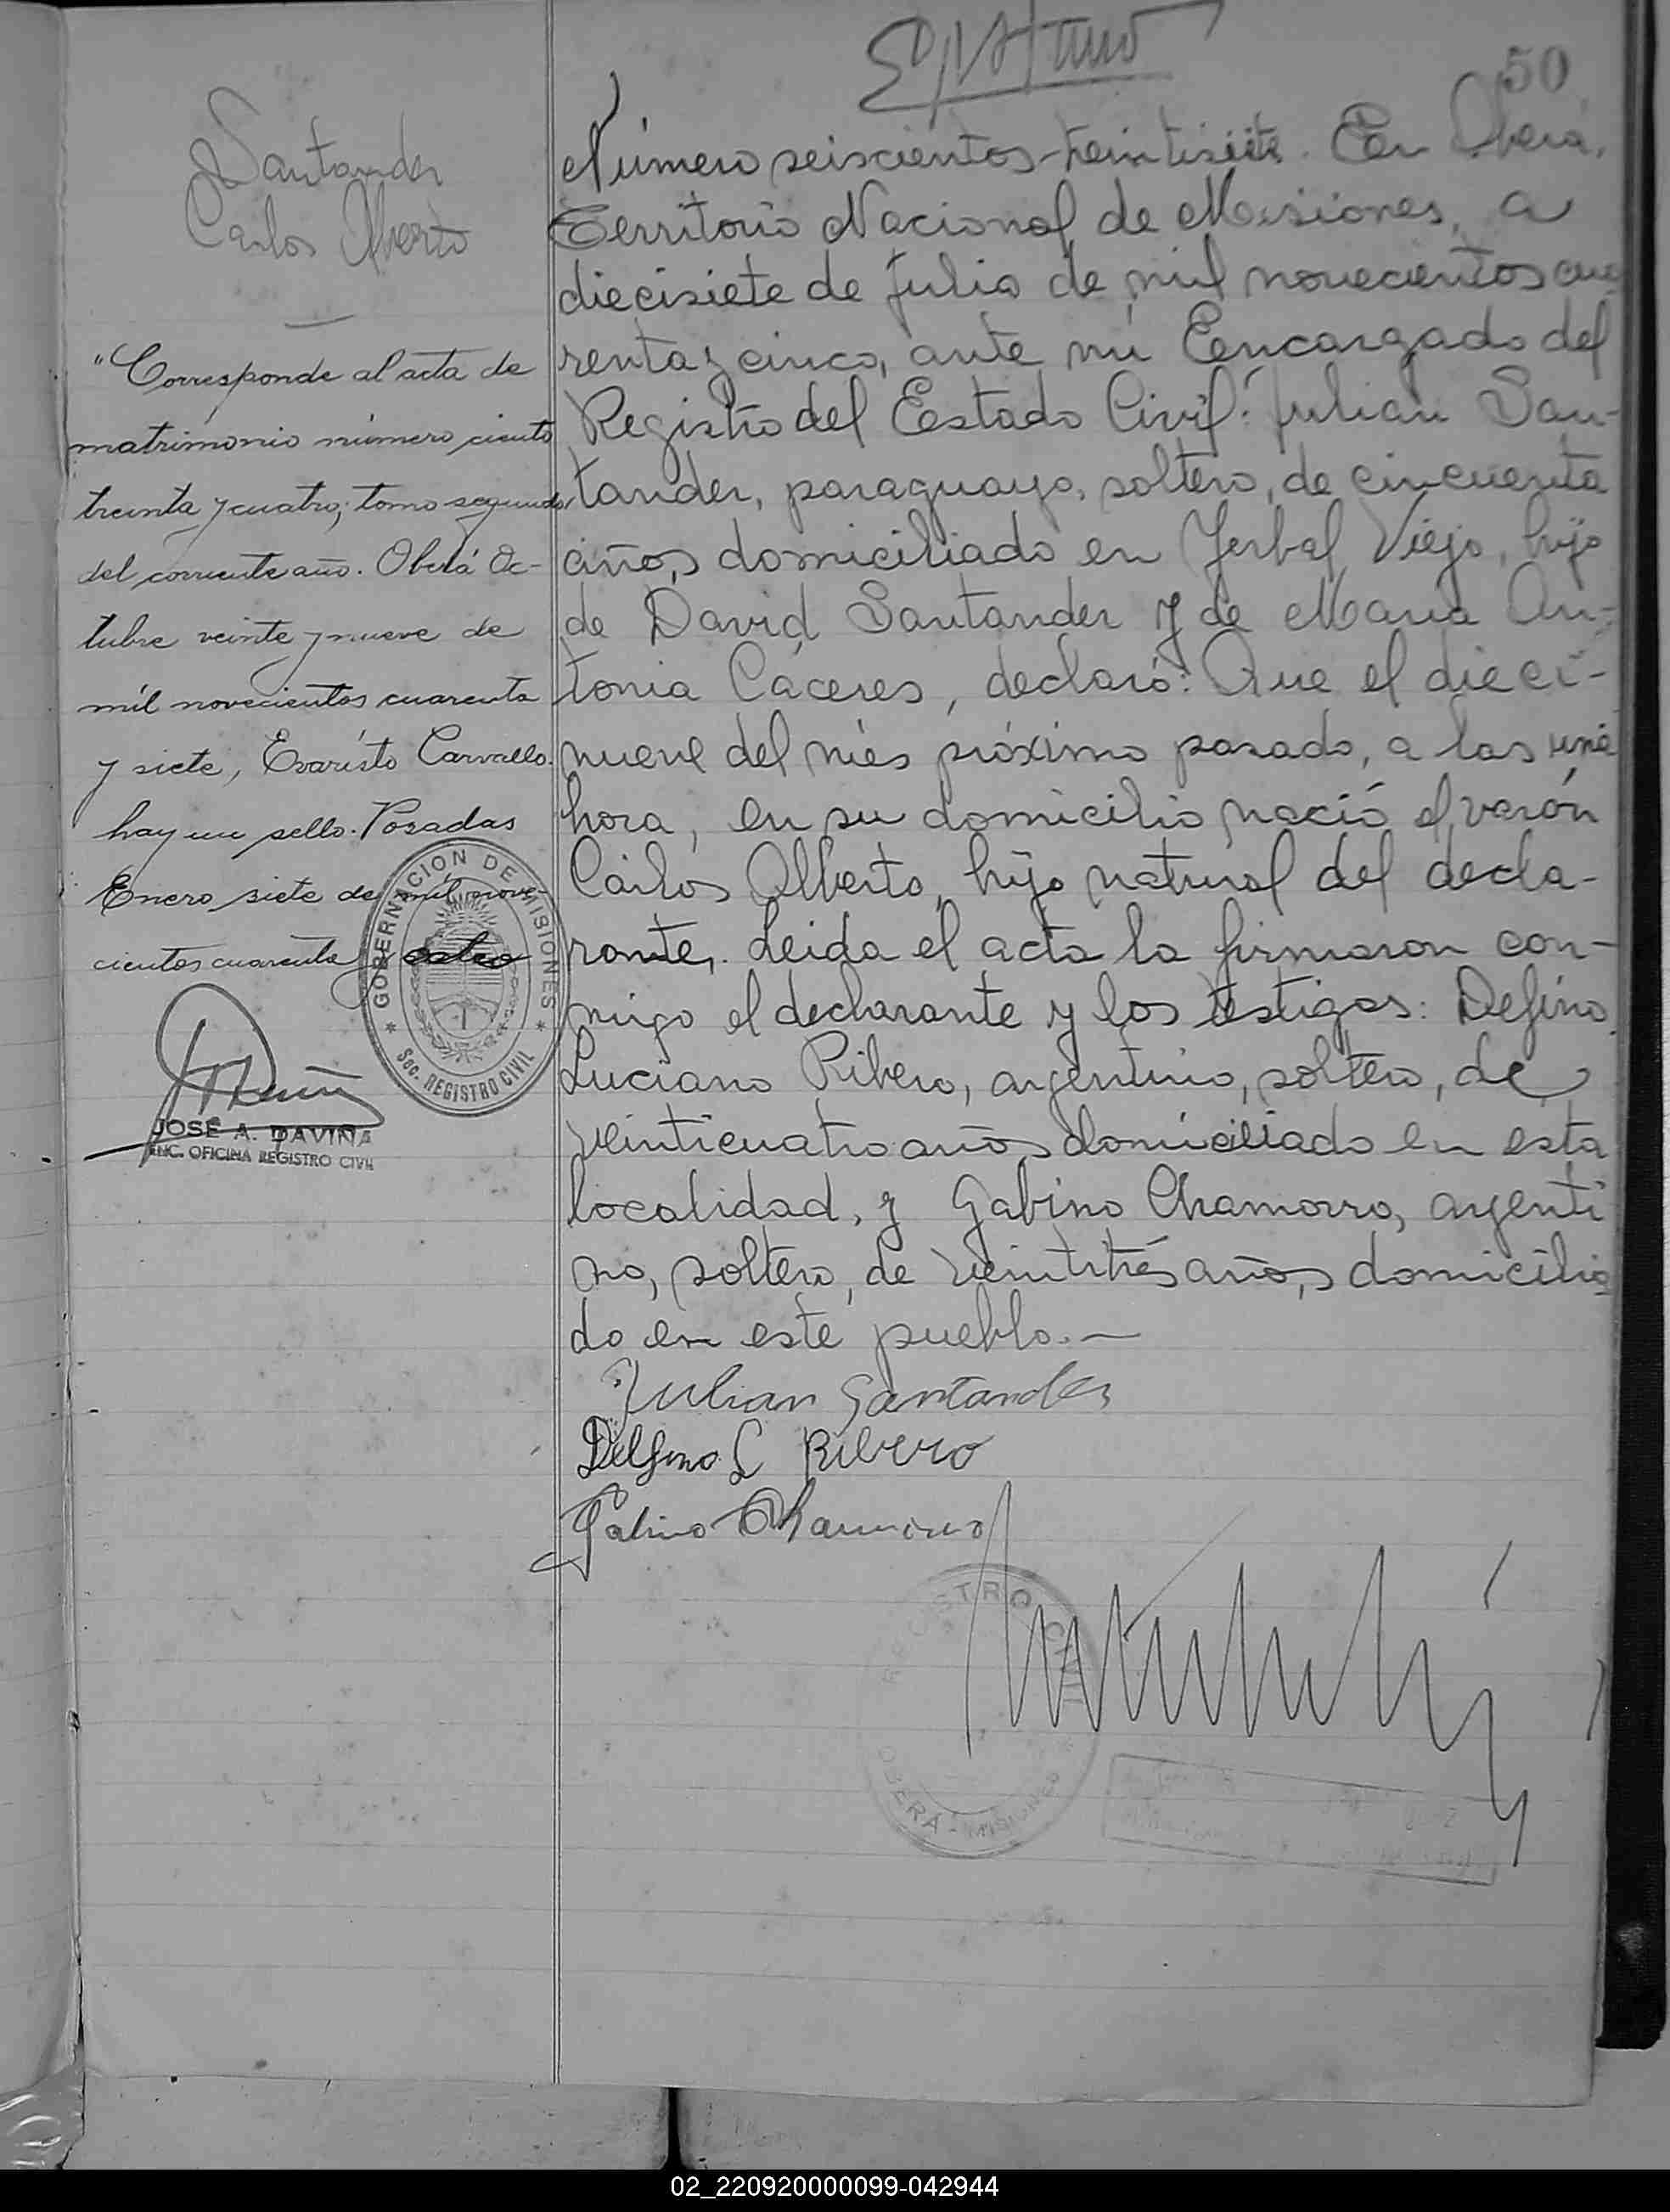 50
Santander
Carlos Alberto
"Corresponde al acta de
matrimonio número ciento
treinta y cuatro, tomo segundo,
del corriente año. Oberá Oc-
tubre veinte y nueve de
mil novecientos cuarenta
y siete, Evaristo Carvallo.
hay un sello. Posadas
Enero siete de mil nove-
cientos cuarenta y ocho
GOBERNACION DE MISIONES
Sec. REGISTRO CIVIL
JOSÉ A. DAVIÑA
ENC. OFICINA REGISTRO CIVIL
Número seiscientos veintisiete. En Oberá,
Territorio Nacional de Misiones, a
diecisiete de Julio de mil novecientos cua
renta y cinco, ante mí Encargado del
Registro del Estado Civil: Julian San-
tander, paraguayo, soltero, de cincuenta
años, domiciliado en Yerbal Viejo, hijo
de David Santander y de Maria An-
tonia Cáceres, declaró: Que el dieci-
nueve del mes próximo pasado, a las una
hora, en su domicilio nació el varón
Carlos Alberto, hijo natural del decla-
rante,. Leida el acta la firmaron con-
migo el declarante y los testigos: Delfino
Luciano Ribero, argentino, soltero, de
veinticuatro años domiciliado en esta
localidad, y Gabino Chamorro, argenti
no, soltero, de veintitrés años, domicilia
do en este pueblo.—
Julian Santander
Delfino L Ribero
Gabino Chamorro
REGISTRO CIVIL
OBERÁ - MISIONES
02_220920000099-042944